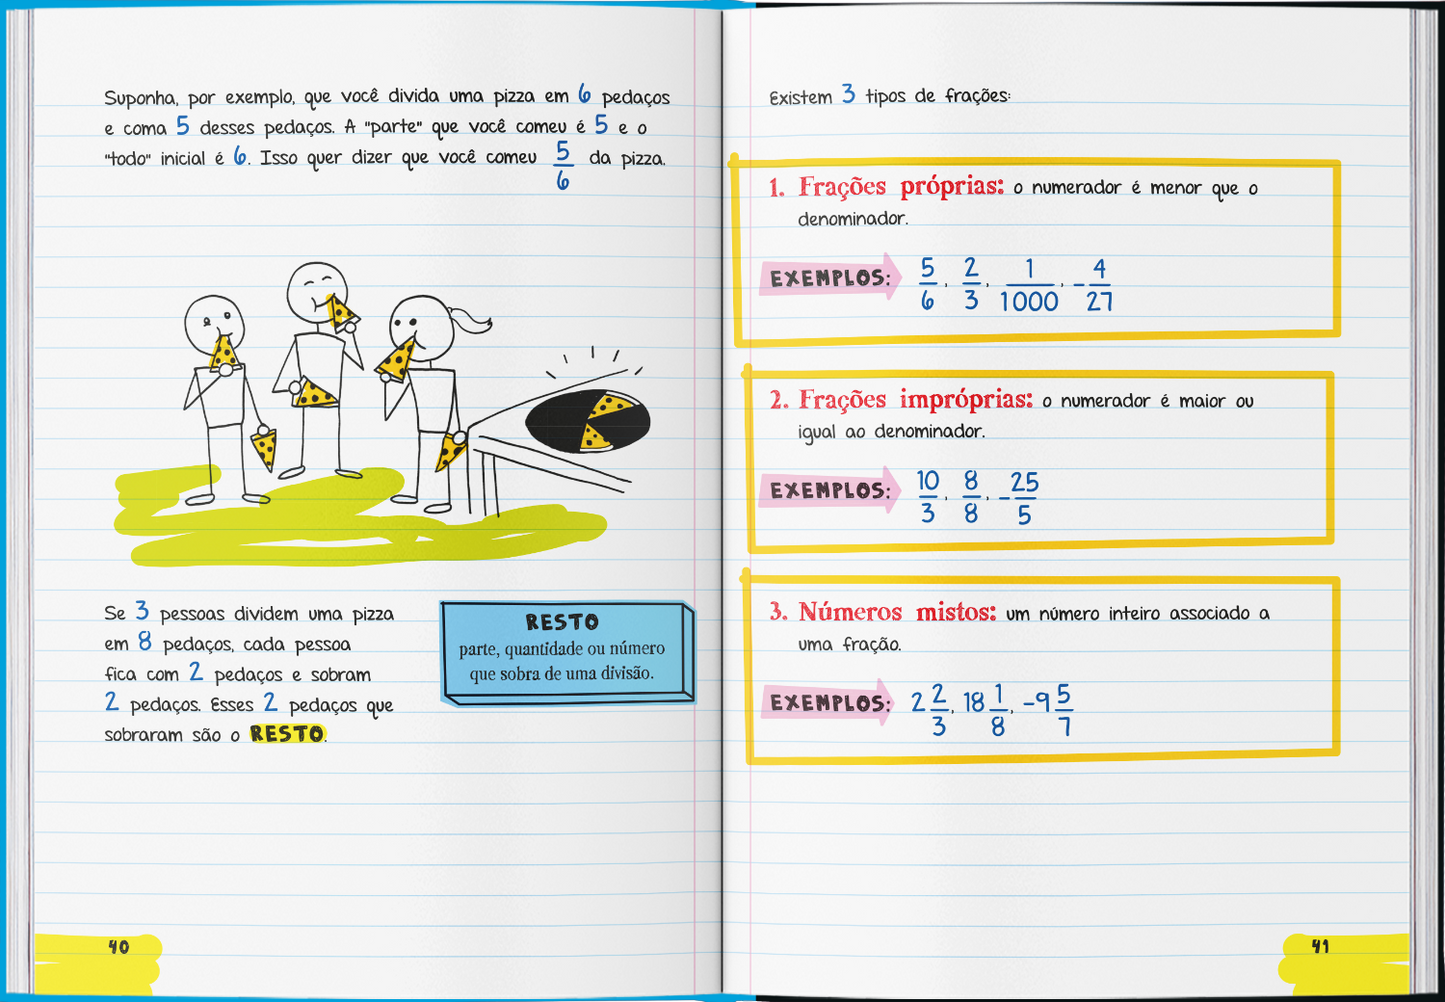 Suponha, por exemplo, que você divida uma pizza em 6 pedaços
e coma 5 desses pedaços. A "parte" que você comeu é 5 e o
"todo" inicial é 6. Isso quer dizer que você comeu 5/6 da pizza.
Se 3 pessoas dividem uma pizza
em 8 pedaços, cada pessoa
fica com 2 pedaços e sobram
2 pedaços. Esses 2 pedaços que
sobraram são o RESTO.
RESTO
parte, quantidade ou número
que sobra de uma divisão.
40
Existem 3 tipos de frações:
1. Frações próprias: o numerador é menor que o
denominador.
EXEMPLOS: 5/6, 2/3, 1/1000, -4/27
2. Frações impróprias: o numerador é maior ou
igual ao denominador.
EXEMPLOS: 10/3, 8/8, -25/5
3. Números mistos: um número inteiro associado a
uma fração.
EXEMPLOS: 2 2/3, 18 1/8, -9 5/7
41